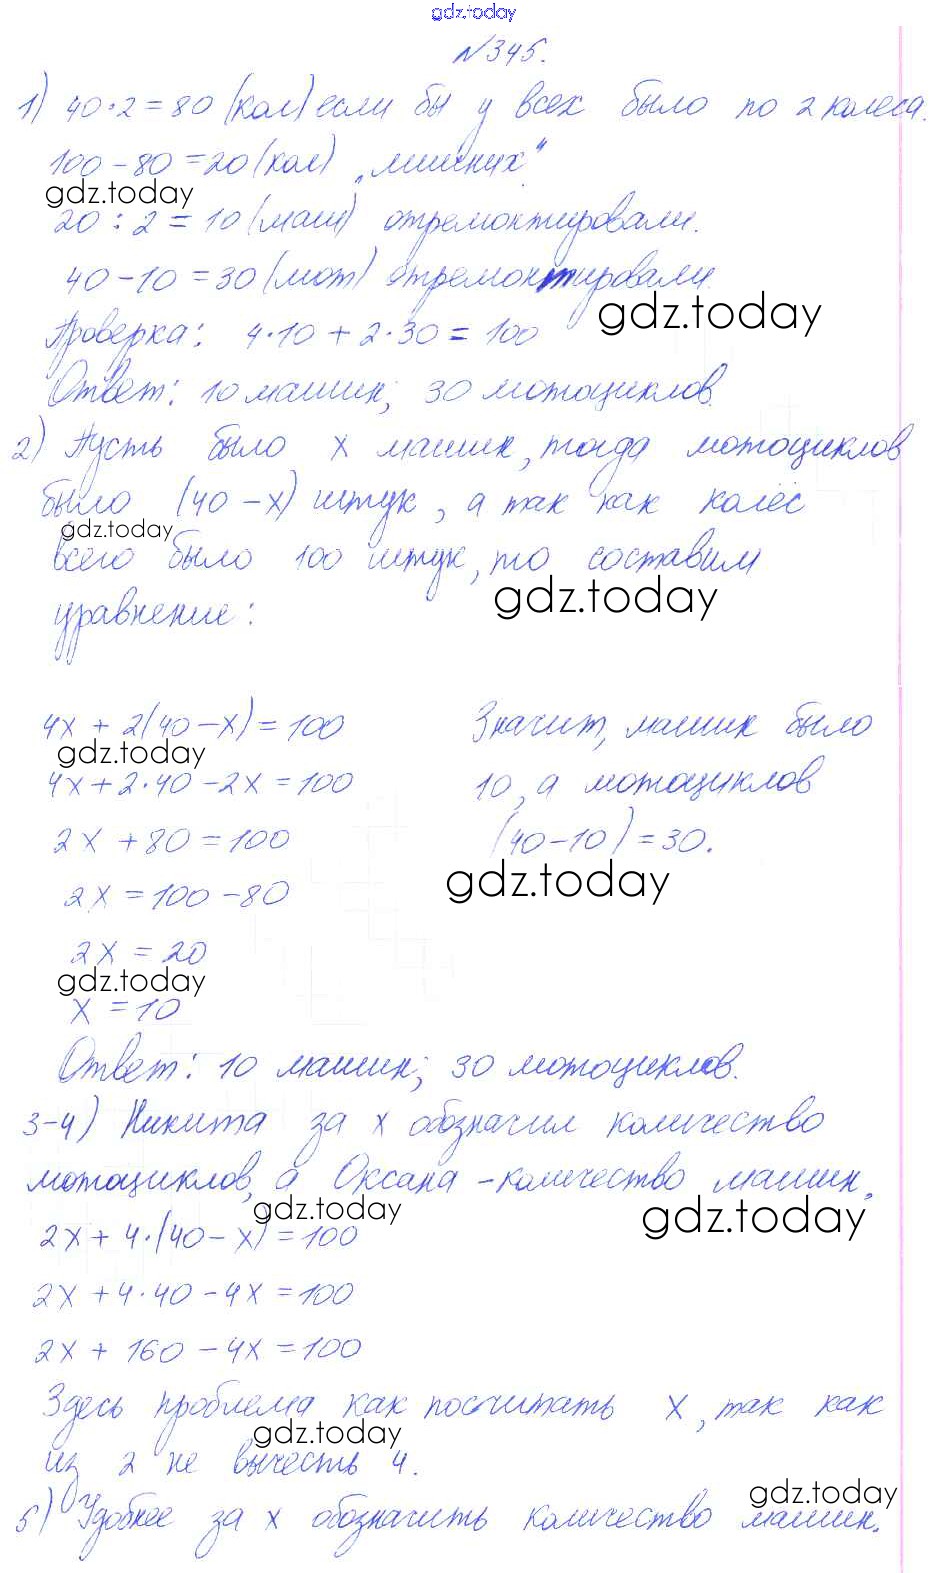 gdz.today
№345.
1) 40·2=80 (кол) если бы у всех было по 2 колеса.
100-80=20 (кол) „лишних"
gdz.today
20:2=10 (маш) отремонтировали.
40-10=30 (мот) отремонтировали.
gdz.today
Проверка: 4·10+2·30=100
Ответ: 10 машин; 30 мотоциклов.
2) Пусть было x машин, тогда мотоциклов
было (40-x) штук, а так как колёс
gdz.today
всего было 100 штук, то составим
gdz.today
уравнение:
4x+2(40-x)=100 Значит, машин было
gdz.today
4x+2·40-2x=100 10, а мотоциклов
2x+80=100 (40-10)=30.
gdz.today
2x=100-80
2x=20
gdz.today
x=10
Ответ: 10 машин; 30 мотоциклов.
3-4) Никита за x обозначил количество
мотоциклов, а Оксана - количество машин.
gdz.today
gdz.today
2x+4·(40-x)=100
2x+4·40-4x=100
2x+160-4x=100
Здесь проблема как посчитать x, так как
gdz.today
из 2 не вычесть 4.
gdz.today
5) Удобнее за x обозначить количество машин.